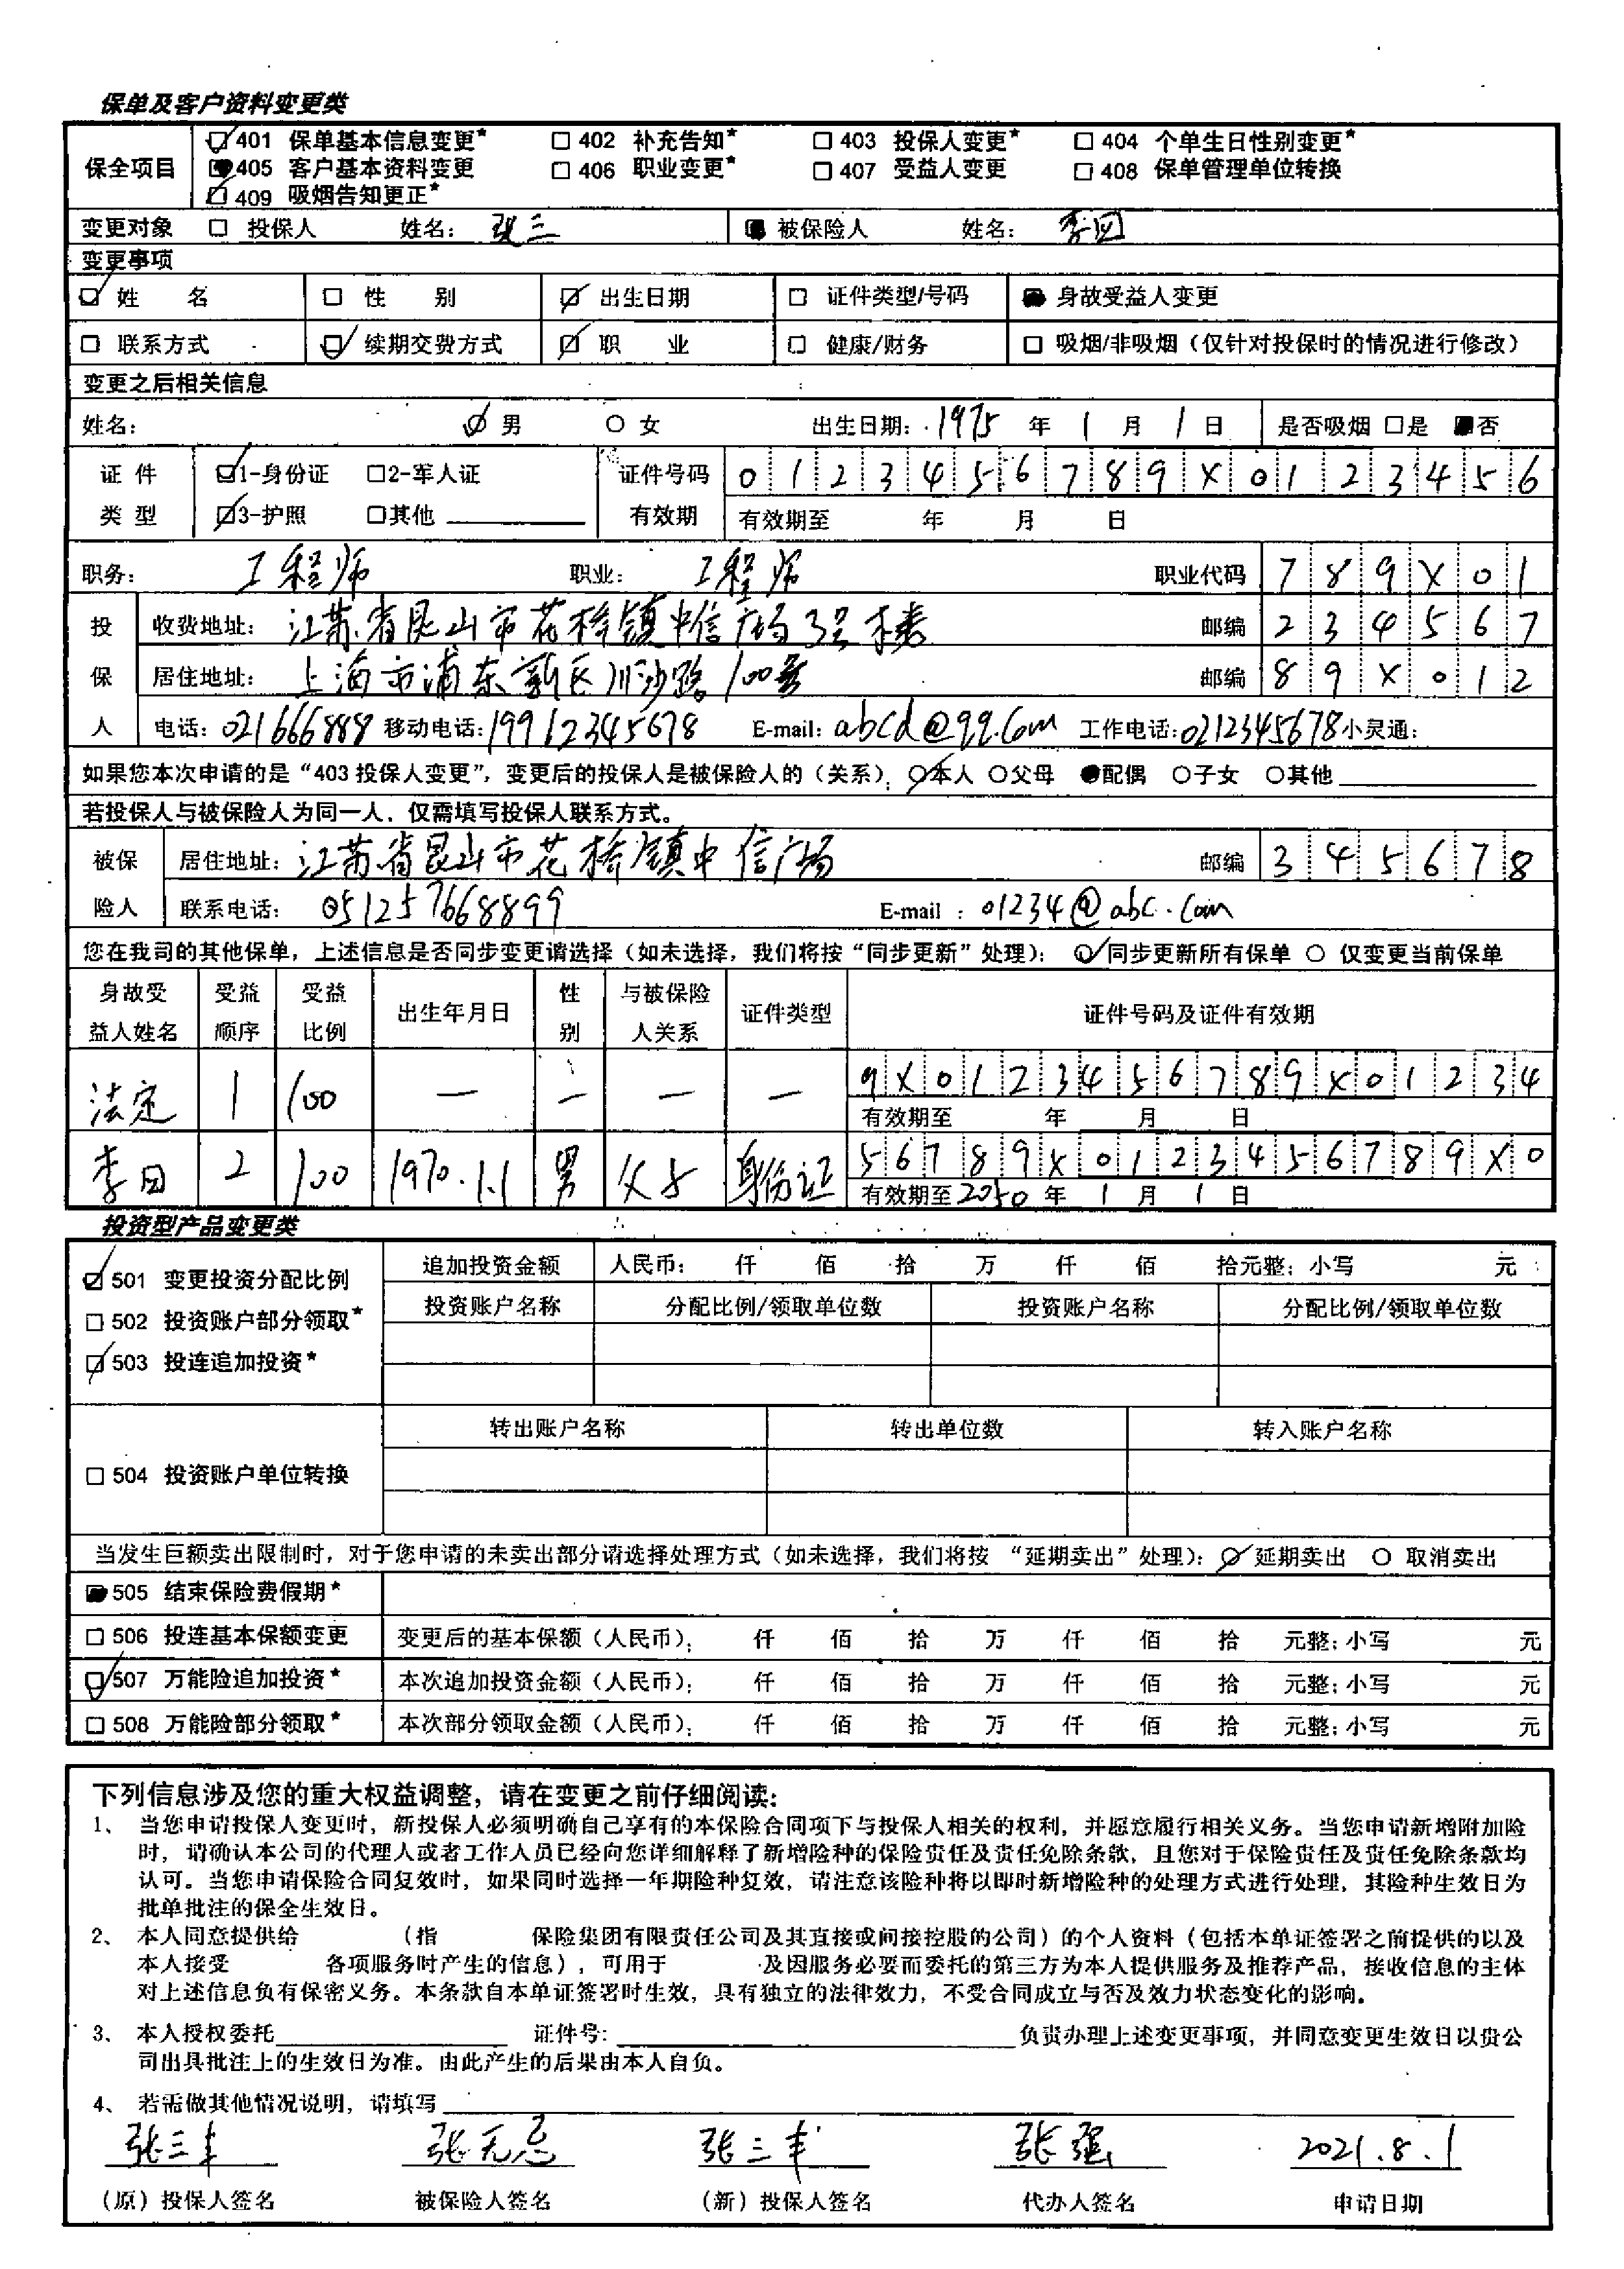 保单及客户资料变更类
保全项目 401 保单基本信息变更* 402 补充告知* 403 投保人变更* 404 个单生日性别变更*
405 客户基本资料变更 406 职业变更* 407 受益人变更 408 保单管理单位转换
409 吸烟告知更正*
变更对象 投保人 姓名: 张三 被保险人 姓名: 李四
变更事项
姓 名 性 别 出生日期 证件类型/号码 身故受益人变更
联系方式 续期交费方式 职 业 健康/财务 吸烟/非吸烟(仅针对投保时的情况进行修改)
变更之后相关信息
姓名: 男 女 出生日期: 1975 年 1 月 1 日 是否吸烟 是 否
证件 1-身份证 2-军人证 证件号码 0123456789X0123456
类型 3-护照 其他 有效期 有效期至 年 月 日
职务: 工程师 职业: 工程师 职业代码 789X01
投 收费地址: 江苏省昆山市花桥镇中信广场3号楼 邮编 234567
保 居住地址: 上海市浦东新区川沙路100号 邮编 89X012
人 电话: 021666888 移动电话: 19912345678 E-mail: abcd@qq.com 工作电话: 0212345678 小灵通:
如果您本次申请的是“403 投保人变更”, 变更后的投保人是被保险人的(关系): 本人 父母 配偶 子女 其他
若投保人与被保险人为同一人, 仅需填写投保人联系方式。
被保 居住地址: 江苏省昆山市花桥镇中信广场 邮编 345678
险人 联系电话: 051257668899 E-mail : 01234@abc.com
您在我司的其他保单, 上述信息是否同步变更请选择(如未选择, 我们将按“同步更新”处理): 同步更新所有保单 仅变更当前保单
身故受益人姓名 受益顺序 受益比例 出生年月日 性别 与被保险人关系 证件类型 证件号码及证件有效期
法定 1 100 — — — — 9X0123456789X01234
有效期至 年 月 日
李 2 100 1970.1.1 男 父子 身份证 56789X0123456789X0
有效期至 2050 年 1 月 1 日
投资型产品变更类
501 变更投资分配比例 追加投资金额 人民币: 仟 佰 拾 万 仟 佰 拾元整; 小写 元
502 投资账户部分领取* 投资账户名称 分配比例/领取单位数 投资账户名称 分配比例/领取单位数
503 投连追加投资*
转出账户名称 转出单位数 转入账户名称
504 投资账户单位转换
当发生巨额卖出限制时, 对于您申请的未卖出部分请选择处理方式(如未选择, 我们将按 “延期卖出”处理): 延期卖出 取消卖出
505 结束保险费假期*
506 投连基本保额变更 变更后的基本保额(人民币): 仟 佰 拾 万 仟 佰 拾 元整; 小写 元
507 万能险追加投资* 本次追加投资金额(人民币): 仟 佰 拾 万 仟 佰 拾 元整; 小写 元
508 万能险部分领取* 本次部分领取金额(人民币): 仟 佰 拾 万 仟 佰 拾 元整; 小写 元
下列信息涉及您的重大权益调整, 请在变更之前仔细阅读:
1、 当您申请投保人变更时, 新投保人必须明确自己享有的本保险合同项下与投保人相关的权利, 并愿意履行相关义务。当您申请新增附加险
时, 请确认本公司的代理人或者工作人员已经向您详细解释了新增险种的保险责任及责任免除条款, 且您对于保险责任及责任免除条款均
认可。当您申请保险合同复效时, 如果同时选择一年期险种复效, 请注意该险种将以即时新增险种的处理方式进行处理, 其险种生效日为
批单批注的保全生效日。
2、 本人同意提供给 (指 保险集团有限责任公司及其直接或间接控股的公司)的个人资料(包括本单证签署之前提供的以及
本人接受 各项服务时产生的信息), 可用于 及因服务必要而委托的第三方为本人提供服务及推荐产品, 接收信息的主体
对上述信息负有保密义务。本条款自本单证签署时生效, 具有独立的法律效力, 不受合同成立与否及效力状态变化的影响。
3、 本人授权委托 证件号: 负责办理上述变更事项, 并同意变更生效日以贵公
司出具批注上的生效日为准。由此产生的后果由本人自负。
4、 若需做其他情况说明, 请填写
张三丰 张无忌 张三丰 张强 2021.8.1
(原)投保人签名 被保险人签名 (新)投保人签名 代办人签名 申请日期